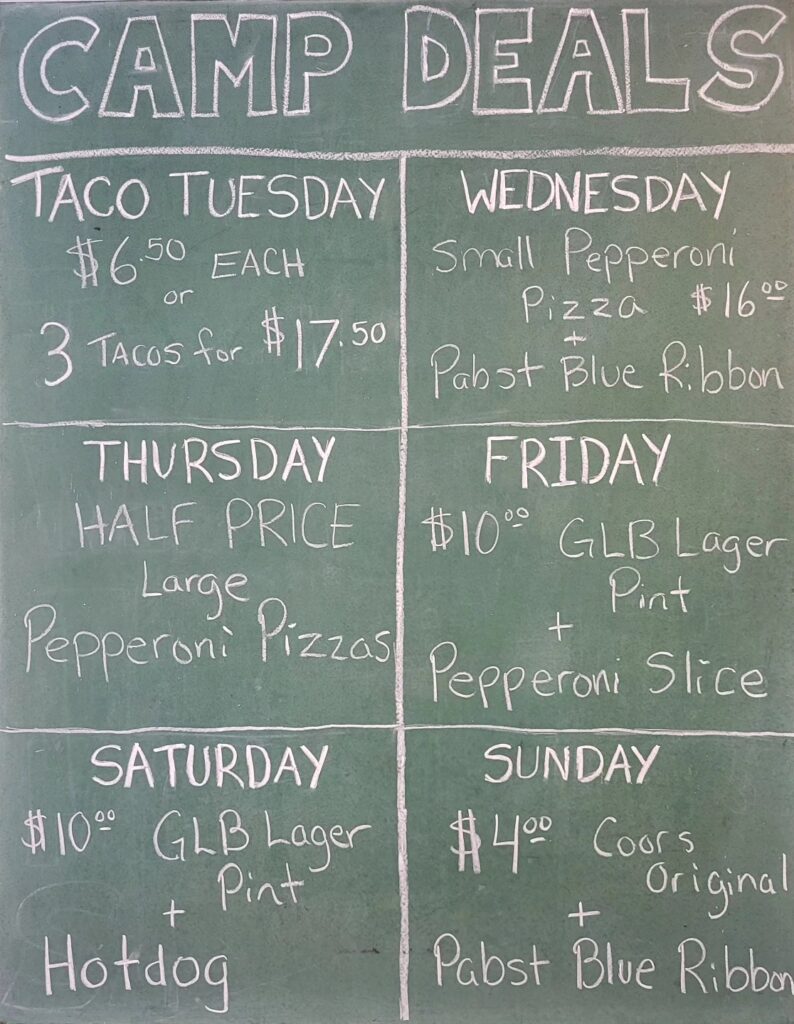 CAMP DEALS
TACO TUESDAY
$6.50 EACH
or
3 TACOS for $17.50
WEDNESDAY
Small Pepperoni
Pizza $16.00
+
Pabst Blue Ribbon
THURSDAY
HALF PRICE
Large
Pepperoni Pizzas
FRIDAY
$10.00 GLB Lager
Pint
+
Pepperoni Slice
SATURDAY
$10.00 GLB Lager
Pint
+
Hotdog
SUNDAY
$4.00 Coors
Original
+
Pabst Blue Ribbon